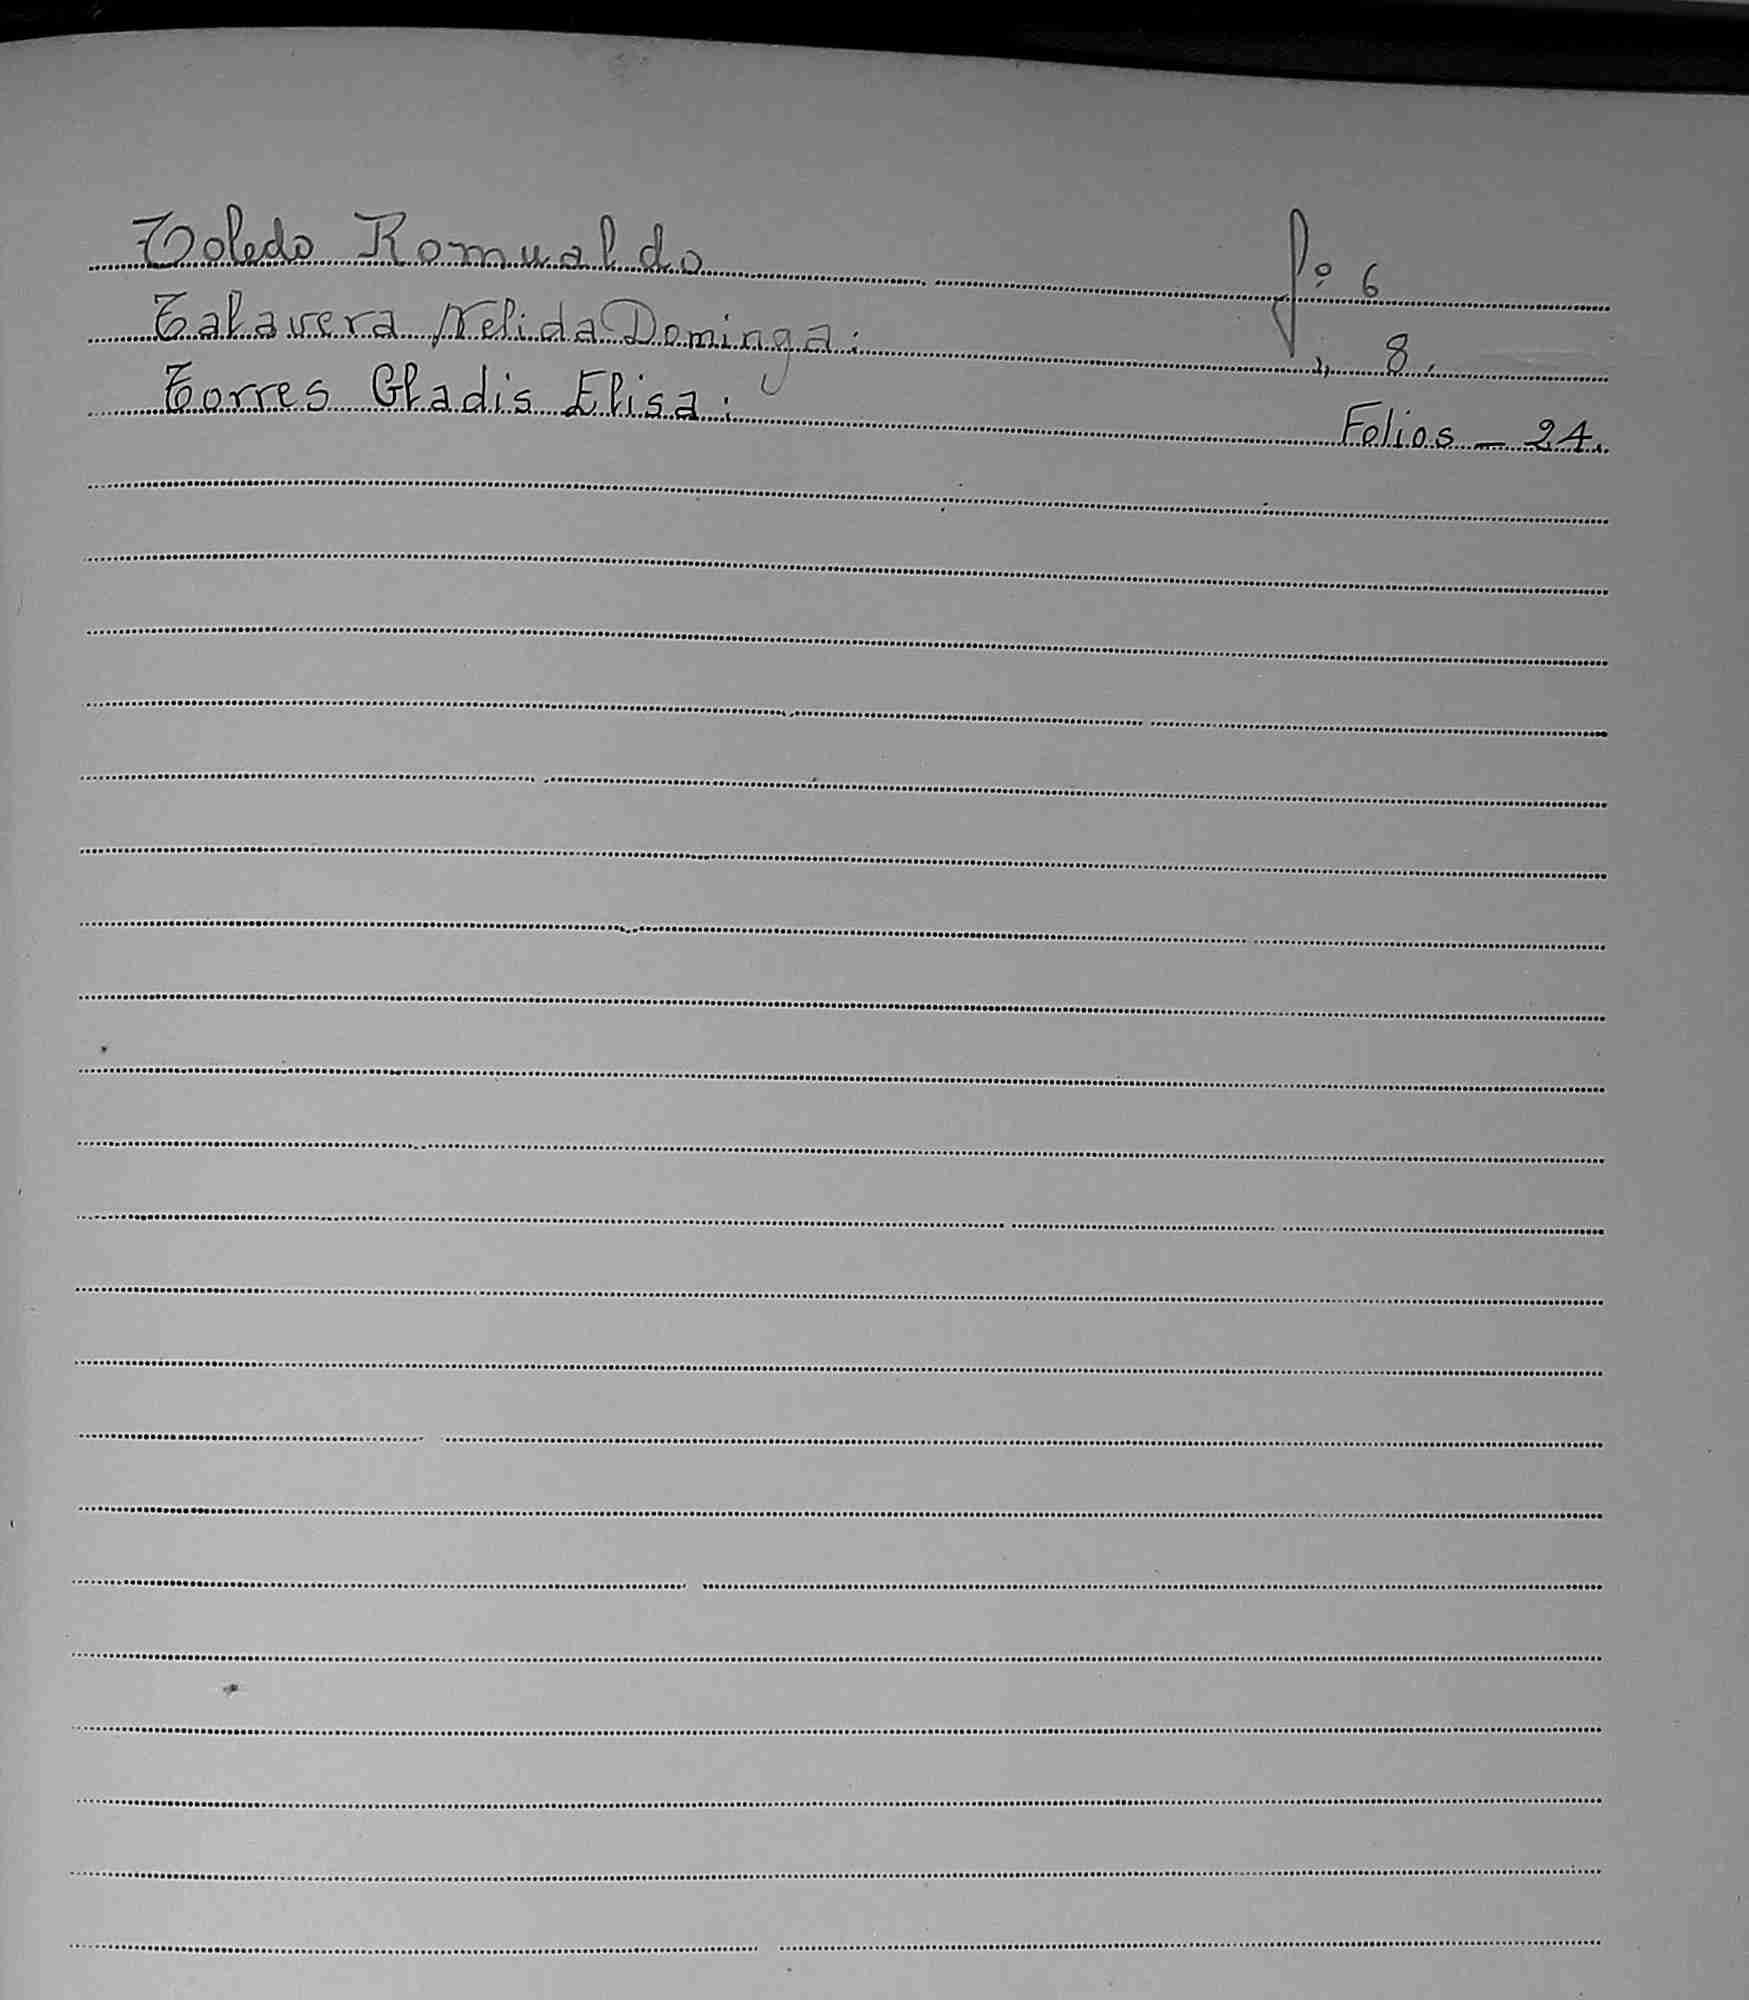 Toledo Romualdo fº 6
Talavera Nelida Dominga: ,, 8.
Torres Gladis Elisa: Folios - 24.